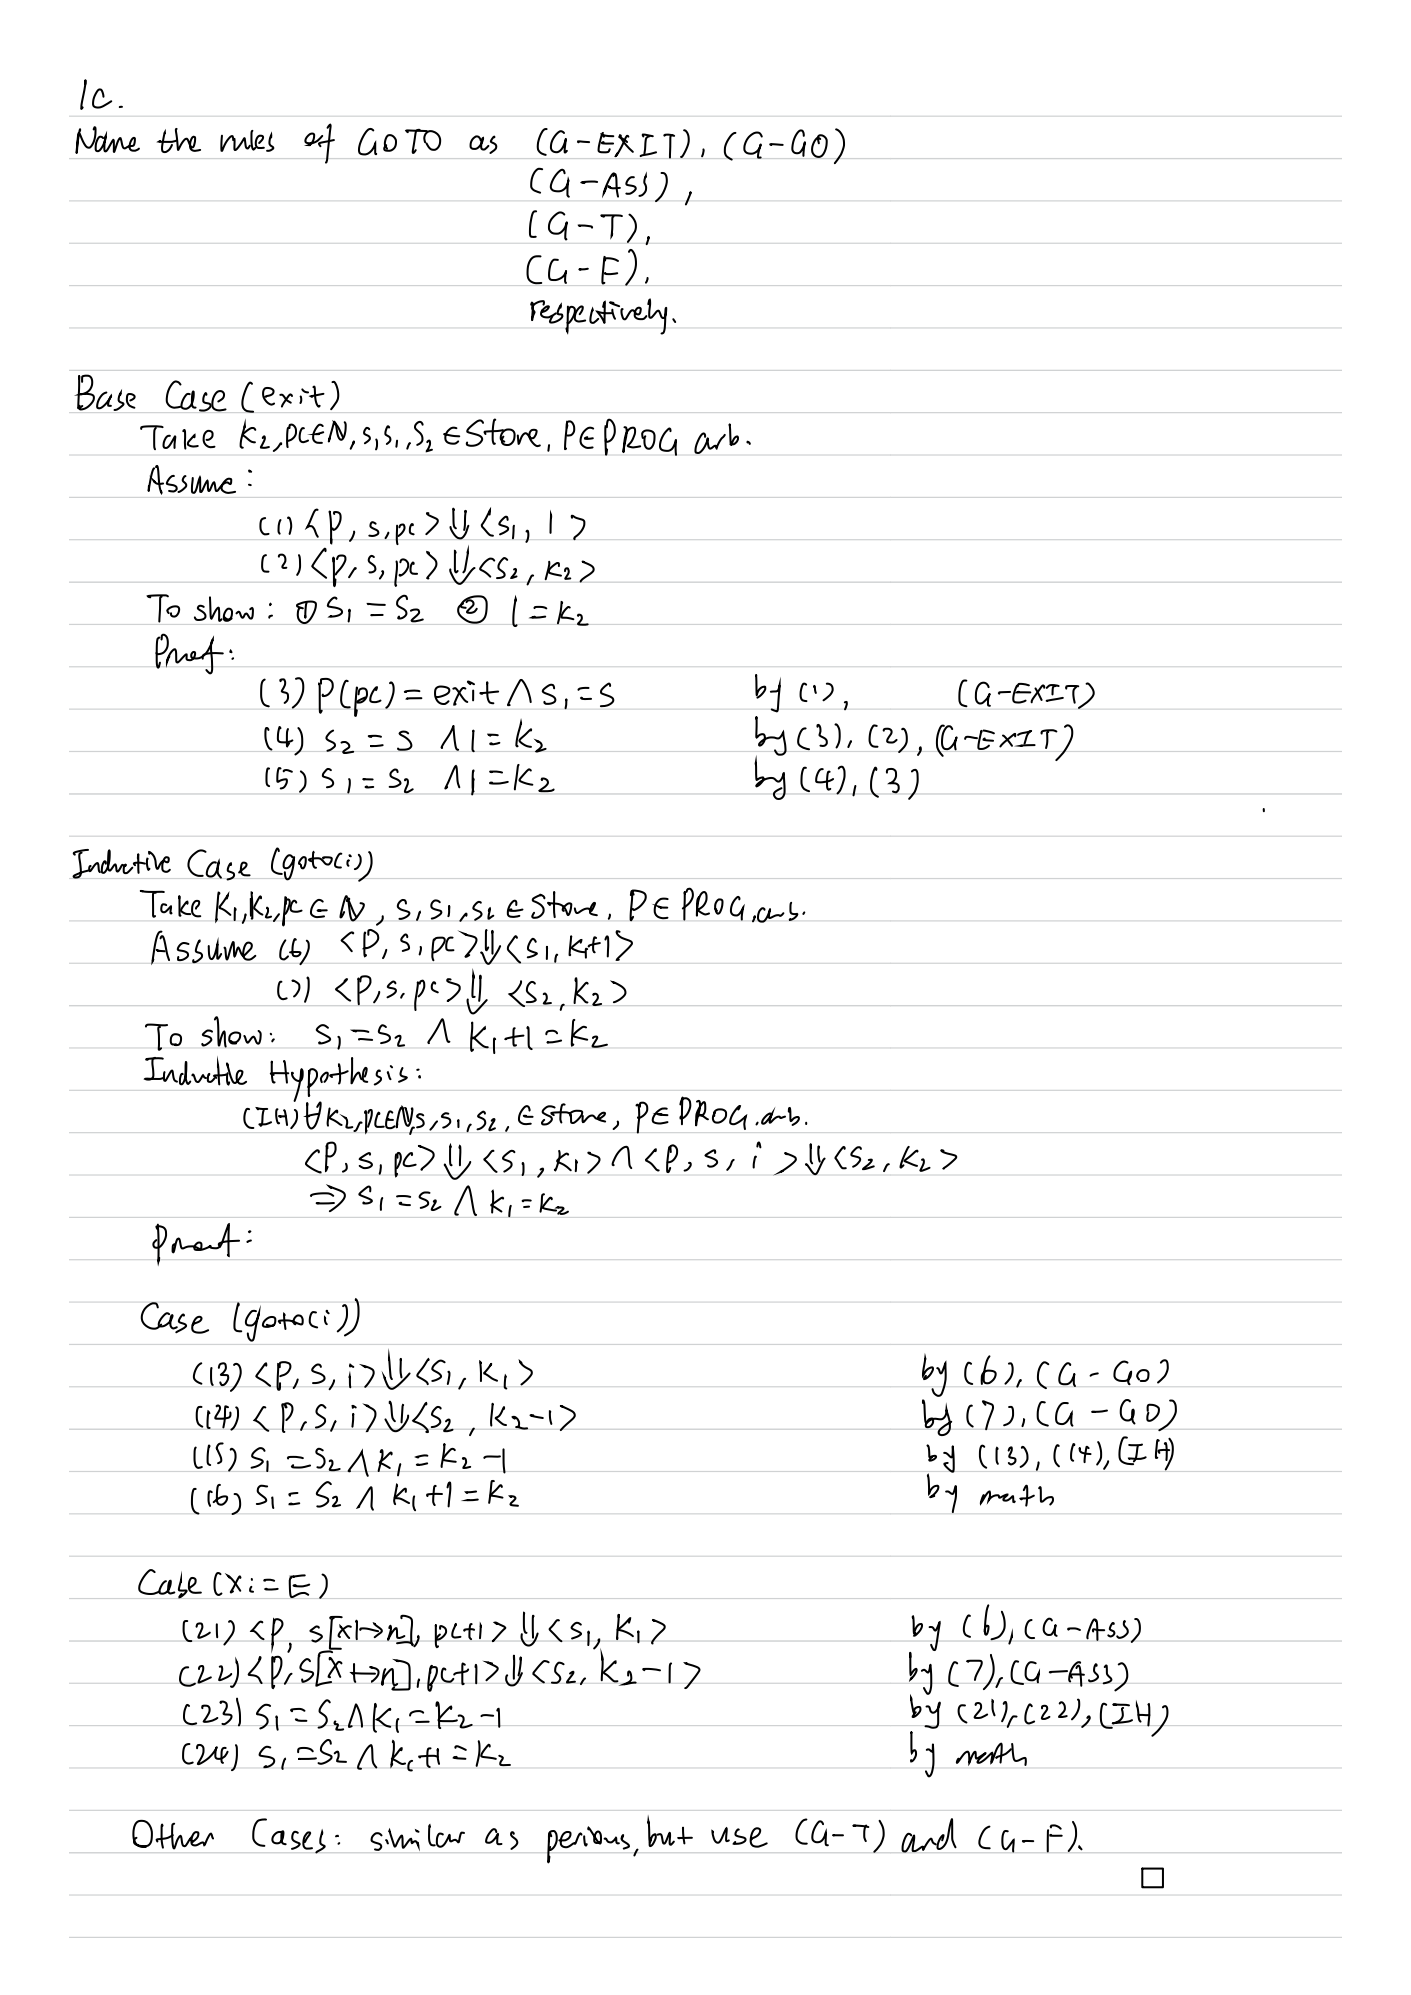 1c.
Name the rules of GOTO as (G-EXIT), (G-GO)
(G-ASS),
(G-T),
(G-F).
respectively.
Base Case (exit)
Take K₂,pc∈N, s,s₁,s₂ ∈ Store, P∈PROG arb.
Assume:
(1) <P, s, pc> ⇓ <s₁, 1>
(2) <P, s, pc> ⇓ <s₂, K₂>
To show: ① s₁ = s₂ ② 1 = K₂
Proof:
(3) P(pc) = exit ∧ s₁ = s by (1), (G-EXIT)
(4) s₂ = s ∧ 1 = K₂ by (3), (2), (G-EXIT)
(5) s₁ = s₂ ∧ 1 = K₂ by (4), (3)
Inductive Case (goto(i))
Take K₁,K₂,pc ∈ N, s,s₁,s₂ ∈ Store, P∈PROG, arb.
Assume (6) <P, s, pc> ⇓ <s₁, K₁+1>
(7) <P, s, pc> ⇓ <s₂, K₂>
To show: s₁ = s₂ ∧ K₁+1 = K₂
Inductive Hypothesis:
(IH) ∀K₂,pc∈N,s,s₁,s₂, ∈ Store, P∈PROG. arb.
<P, s, pc> ⇓ <s₁, K₁> ∧ <P, s, i> ⇓ <s₂, K₂>
⇒ s₁ = s₂ ∧ K₁ = K₂
Proof:
Case (goto(i))
(13) <P, s, i> ⇓ <s₁, K₁> by (6), (G-GO)
(14) <P, s, i> ⇓ <s₂, K₂-1> by (7), (G-GO)
(15) s₁ = s₂ ∧ K₁ = K₂-1 by (13), (14), (IH)
(16) s₁ = s₂ ∧ K₁+1 = K₂ by math
Case (x:=E)
(21) <P, s[x↦n], pc+1> ⇓ <s₁, K₁> by (6), (G-ASS)
(22) <P, s[x↦n], pc+1> ⇓ <s₂, K₂-1> by (7), (G-ASS)
(23) s₁ = s₂ ∧ K₁ = K₂-1 by (21), (22), (IH)
(24) s₁ = s₂ ∧ K₁+1 = K₂ by math
Other Cases: similar as perious, but use (G-T) and (G-F).
□